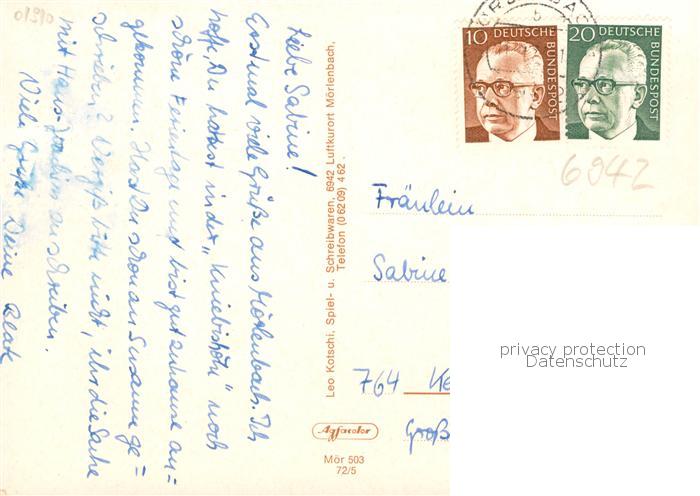 01910
Liebe Sabine!
Erstmal viele Grüße aus Mörlenbach. Ich
hoffe, Du hattest in der „Kniebishöhe" noch
schöne Ferientage und bist gut zuhause an=
gekommen. Hast Du schon an Susanne ge=
schrieben? Vergiß bitte nicht, ihr die Sache
mit Hans-Joachim zu schreiben.
Viele Grüße Deine Beate
Leo Kotschi, Spiel- u. Schreibwaren, 6942 Luftkurort Mörlenbach,
Telefon (06209) 462.
Agfacolor
Mör 503
72/5
10 DEUTSCHE BUNDESPOST
20 DEUTSCHE BUNDESPOST
6942
Fräulein
Sabine
764 Ke
Groß
privacy protection
Datenschutz